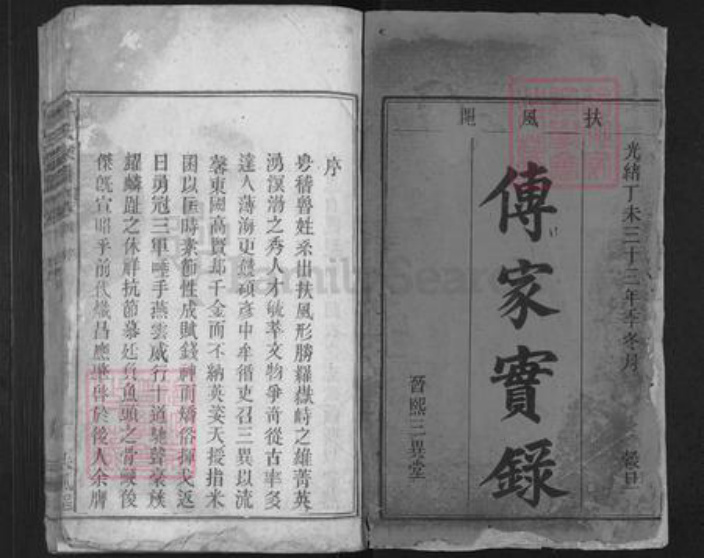 光緒丁未三十三年季冬月 穀旦
扶風郡
傳家實錄
晉熙三異堂
序
粵稽魯姓系出扶風形勝羅嶽峙之雄菁英
湧溟渤之秀人才毓萃文物爭奇從古率多
達人薄海更
彥中牟循吏召三異以流
馨東國高賢却千金而不納英姿天授指米
囷以匡時素節性成賦錢神而矯俗揮戈返
日勇冠三軍唾手燕雲威行十道馳聲
耀麟趾之休祥抗節慕廷負魚頭之骨
後
傑旣宣昭乎前代熾昌應
於後人余膺
FamilySearch